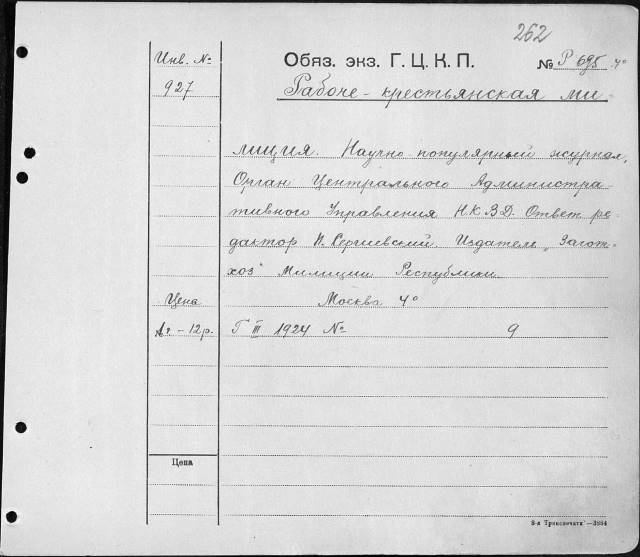 262
Инв. №
927
Обяз. экз. Г. Ц. К. П.
№ Р 695 4°
Рабоче-крестьянская ми
лиция. Научно популярный журнал,
Орган Центрального Администра-
тивного Управления Н.К.В.Д. Ответ. ре-
дактор И. Сергиевский. Издатель "Загот-
хоз" Милиции Республики
Москва 4°
Цена
12р.
Г III 1924 № 9
Цена